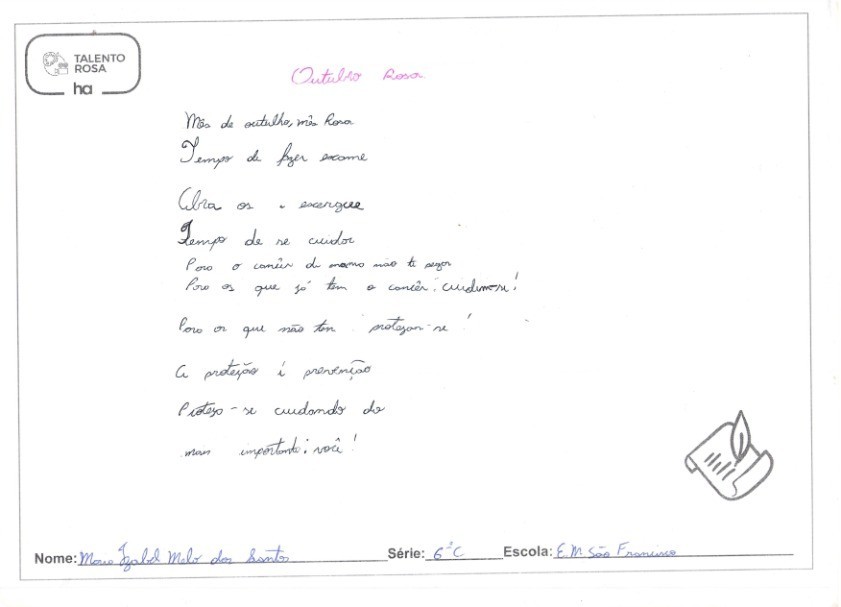 TALENTO
ROSA
ha
Outubro Rosa
Mês de outubho, mês Rosa
Tempo de fazer exame
Abra os e enxergue
Tempo de se cuidar
Para o cancêr de mama não te pegar
Para os que já tem o cancêr: cuidem-se!
Para os que não tem protejam-se!
A proteção é prevenção
Proteja-se cuidando do
mais importante: você!
Nome: Maria Izabel Melo dos Santos Série: 6ºC Escola: E.M São Francisco